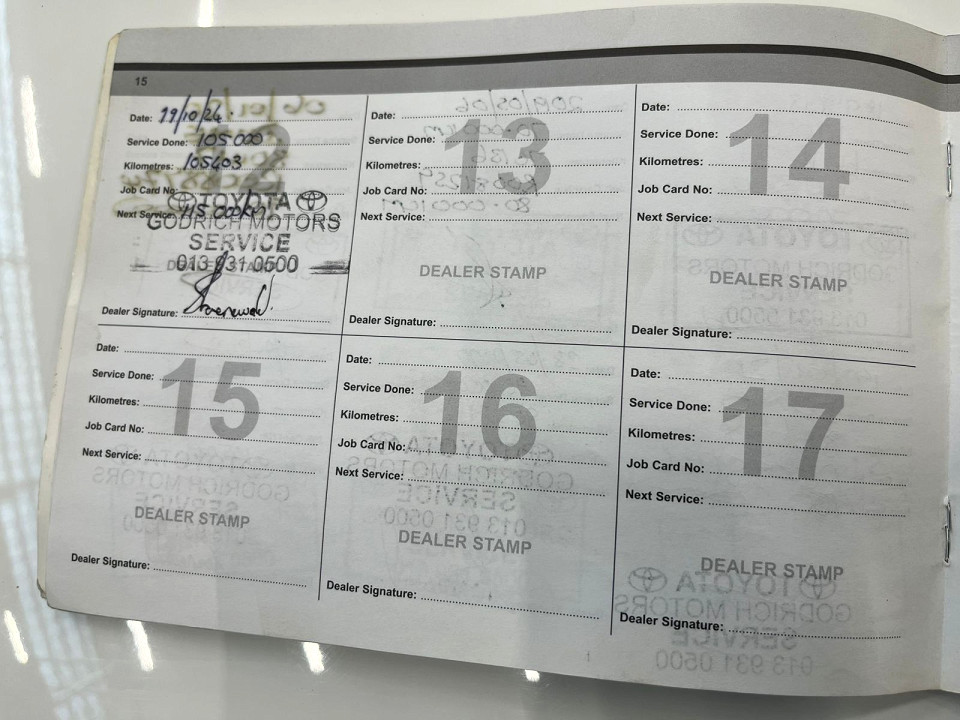 15
Date: 19/10/24.
Service Done: 105 000
Kilometres: 105403
Job Card No:
Next Service: 115 000km
TOYOTA
GODRICH MOTORS
SERVICE
013 931 0500
DEALER STAMP
Dealer Signature:
13
Date:
Service Done:
Kilometres:
Job Card No:
Next Service:
DEALER STAMP
Dealer Signature:
14
Date:
Service Done:
Kilometres:
Job Card No:
Next Service:
DEALER STAMP
Dealer Signature:
15
Date:
Service Done:
Kilometres:
Job Card No:
Next Service:
DEALER STAMP
Dealer Signature:
16
Date:
Service Done:
Kilometres:
Job Card No:
Next Service:
DEALER STAMP
Dealer Signature:
17
Date:
Service Done:
Kilometres:
Job Card No:
Next Service:
DEALER STAMP
Dealer Signature: